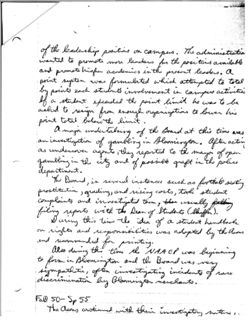 of the leadership position on campus. The administration
wanted to promote more leaders for the positions available
and promote higher academics in the present leaders. A
point system was formulated which attempted to total
by points each students involvement in campus activities
If a student exceeded the point limit he was to be
asked to resign from enough organizations to lower his
point total below the limit.
A major undertaking of the Board at this time was
an investigation of gambling in Bloomington. Often acting
as undercover agents, they reported to the mayor of open
gambling in the city and of possible graft in the police
department.
The Board, in several instances such as football
prostitution, grading, and rising costs, took student
complaints and investigated them, usually
filing reports with the Dean of Students (Shaffer).
During this time the idea of a student handbook
on rights and responsibilities was adopted by the Board
and surrendered for printing.
Also during this time the NAACP was beginning
to form in Bloomington and the Board was very
sympathetic, often investigating incidents of race
discrimination by Bloomington merchants.
Fall 50 - Sp 55
The Aeons continued with their investigatory nature.